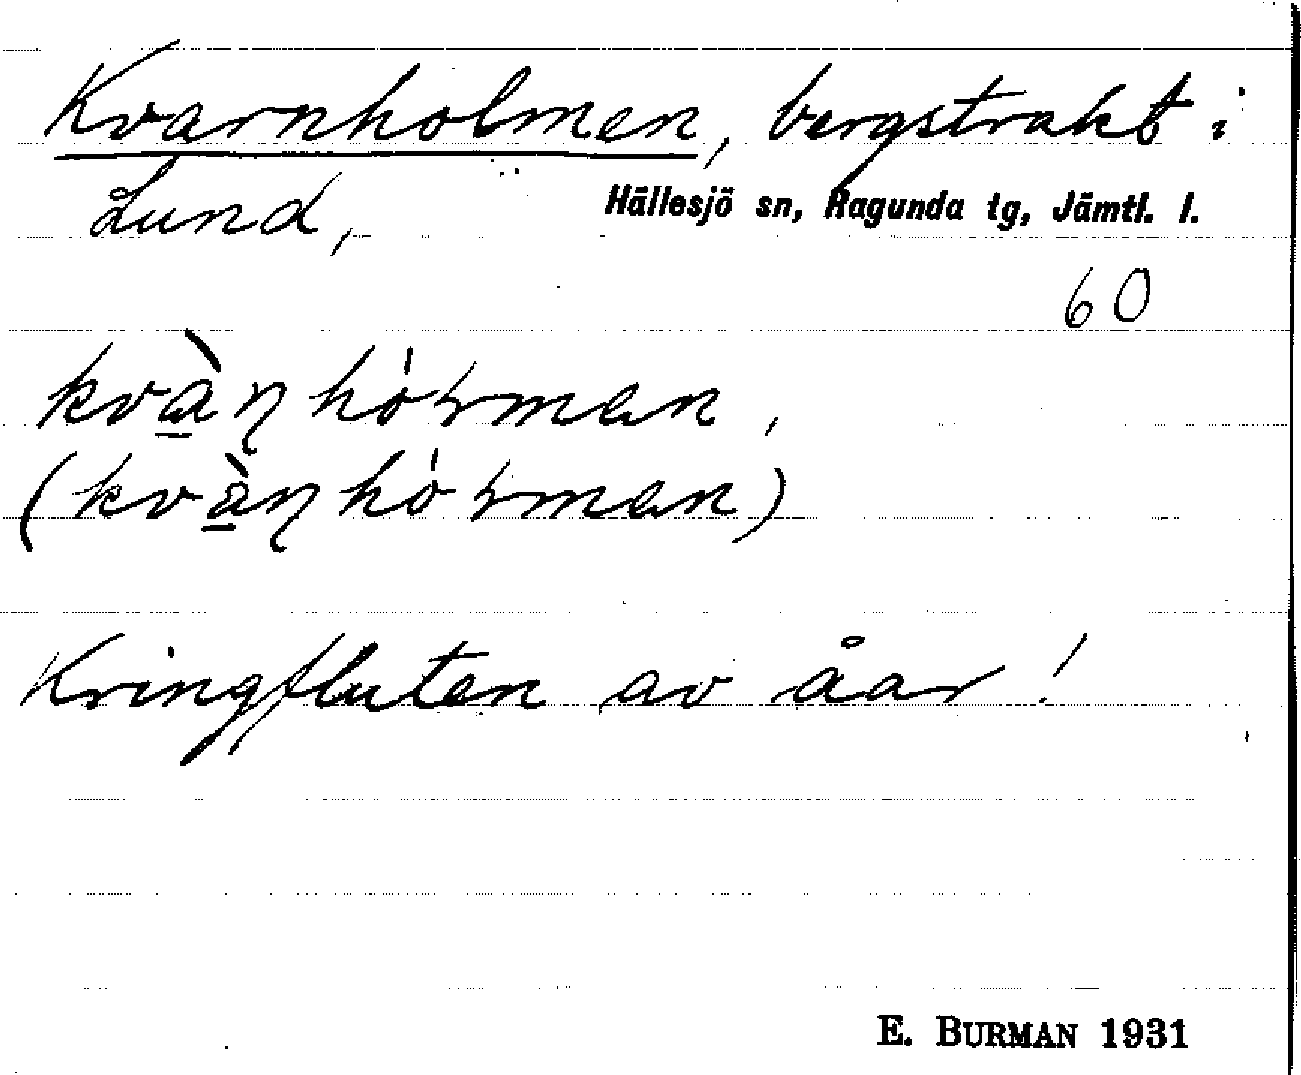 Kvarnholmen, bergstrakt i
Lund, Hällesjö sn, Ragunda tg, Jämtl. l.
60
kvà̱ɳhóɽman,
(kvà̱ɳhóɽman)
Kringfluten av åar!
E. BURMAN 1931